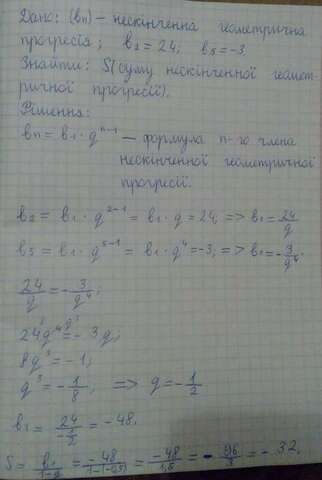 Дано: (вn) – нескінченна геометрична
прогресія; в2 = 24; в5 = -3
Знайти: S (суму нескінченної геомет-
ричної прогресії).
Рішення:
вn = в1 · q^(n-1) – формула n-го члена
нескінченної геометричної
прогресії.
в2 = в1 · q^(2-1) = в1 · q = 24, => в1 = 24/q
в5 = в1 · q^(5-1) = в1 · q^4 = -3, => в1 = -3/q^4.
24/q = -3/q^4;
24q^4 = -3q;
8q^3 = -1;
q^3 = -1/8, => q = -1/2
в1 = 24/(-1/2) = -48.
S = в1/(1-q) = -48/(1-(-0,5)) = -48/1,5 = -96/3 = -32.